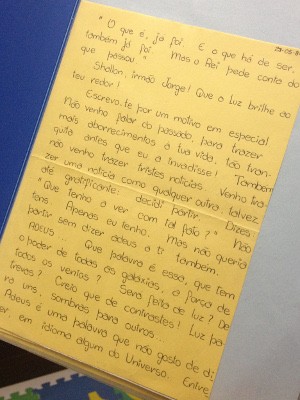 "O que é, já foi. E o que há de ser,
também já foi. Mas o Rei pede conta do
que passou"
Shallon, irmão Jorge! Que a Luz brilhe ao
teu redor!
Escrevo-te por um motivo em especial
Não venho falar do passado, para trazer
mais aborrecimentos à tua vida, tão tran-
quila antes que eu a invadisse! Também
não venho trazer tristes notícias. Venho tra-
zer uma notícia como qualquer outra, talvez
até gratificante: decidi partir. Dizes:
"Que tenho a ver com tal fato?" Não
tens. Apenas eu tenho. Mas não queria
partir sem dizer adeus a ti também.
Adeus... Que palavra é essa, que tem
o poder de todas as galáxias, a força de
todos os ventos? Será feita de luz? De
trevas? Creio que de contrastes! Luz pa-
ra uns, sombras para outros...
Adeus é uma palavra que não gosto de di-
zer, em idioma algum do Universo.